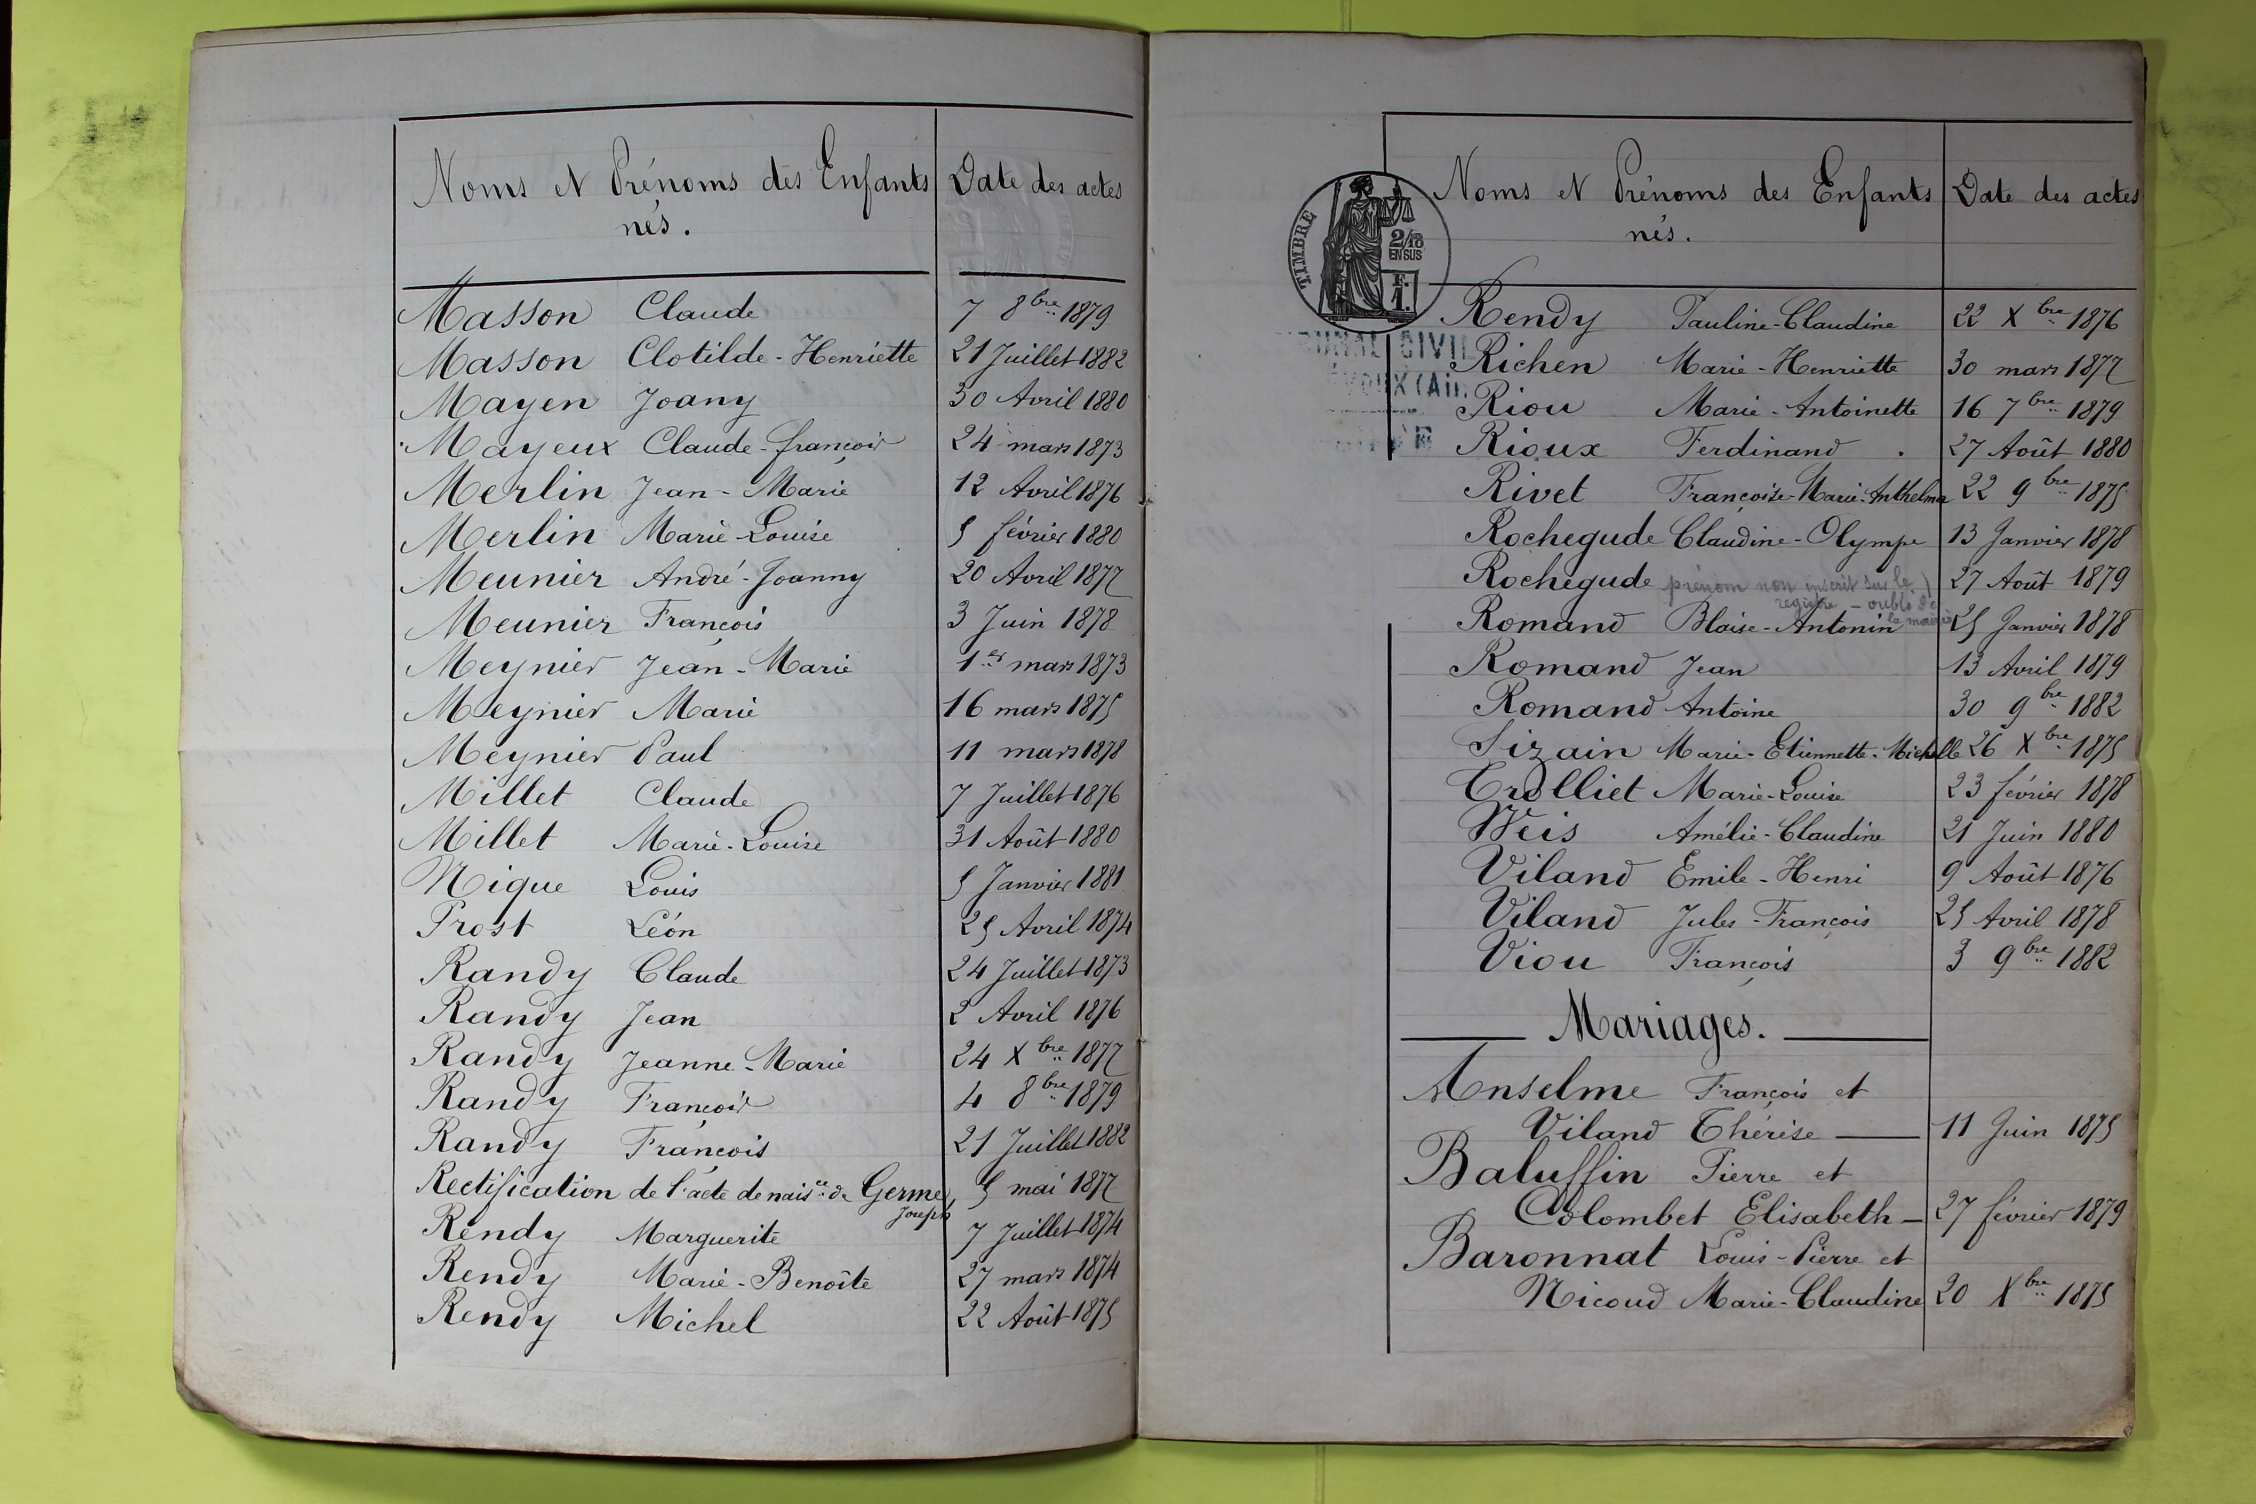 Noms et Prénoms des Enfants Date des actes
nés.
Masson Claude 7 8bre 1879
Masson Clotilde-Henriette 21 Juillet 1882
Mayen Joany 30 Avril 1880
Mayeux Claude-françois 24 mars 1873
Merlin Jean-Marie 12 Avril 1876
Merlin Marie-Louise 5 février 1880
Meunier André-Joanny 20 Avril 1877
Meunier François 3 Juin 1878
Meynier Jean-Marie 1er mars 1873
Meynier Marie 16 mars 1875
Meynier Paul 11 mars 1878
Millet Claude 7 Juillet 1876
Millet Marie-Louise 31 Août 1880
Nique Louis 5 Janvier 1881
Prost Léon 25 Avril 1874
Randy Claude 24 Juillet 1873
Randy Jean 2 Avril 1876
Randy Jeanne-Marie 24 Xbre 1877
Randy François 4 8bre 1879
Randy François 21 Juillet 1882
Rectification de l'acte de naisce de Germe, 5 mai 1877
Joseph
Rendy Marguerite 7 Juillet 1874
Rendy Marie-Benoîte 27 mars 1874
Rendy Michel 22 Août 1875
Noms et Prénoms des Enfants Date des actes
nés.
TIMBRE
2/10
EN SUS
F.
1.
CIVIL
Rendy Pauline-Claudine 22 Xbre 1876
Richen Marie-Henriette 30 mars 1877
Riou Marie-Antoinette 16 7bre 1879
Rioux Ferdinand 27 Août 1880
Rivet Françoise-Marie-Anthelme 22 9bre 1875
Rochegude Claudine-Olympe 13 Janvier 1878
Rochegude prénom non inscrit sur le 27 Août 1879
registre - oubli de
la mairie
Romand Blaise-Antonin 25 Janvier 1878
Romand Jean 13 Avril 1879
Romand Antoine 30 9bre 1882
Sizain Marie-Etiennette-Michelle 26 Xbre 1875
Trolliet Marie-Louise 23 février 1878
Weis Amélie-Claudine 21 Juin 1880
Viland Emile-Henri 9 Août 1876
Viland Jules-François 25 Avril 1878
Viou François 3 9bre 1882
Mariages.
Anselme François et
Viland Thérèse 11 Juin 1875
Baluffin Pierre et
Colombet Elisabeth 27 février 1879
Baronnat Louis-Pierre et
Nicoud Marie-Claudine 20 Xbre 1875